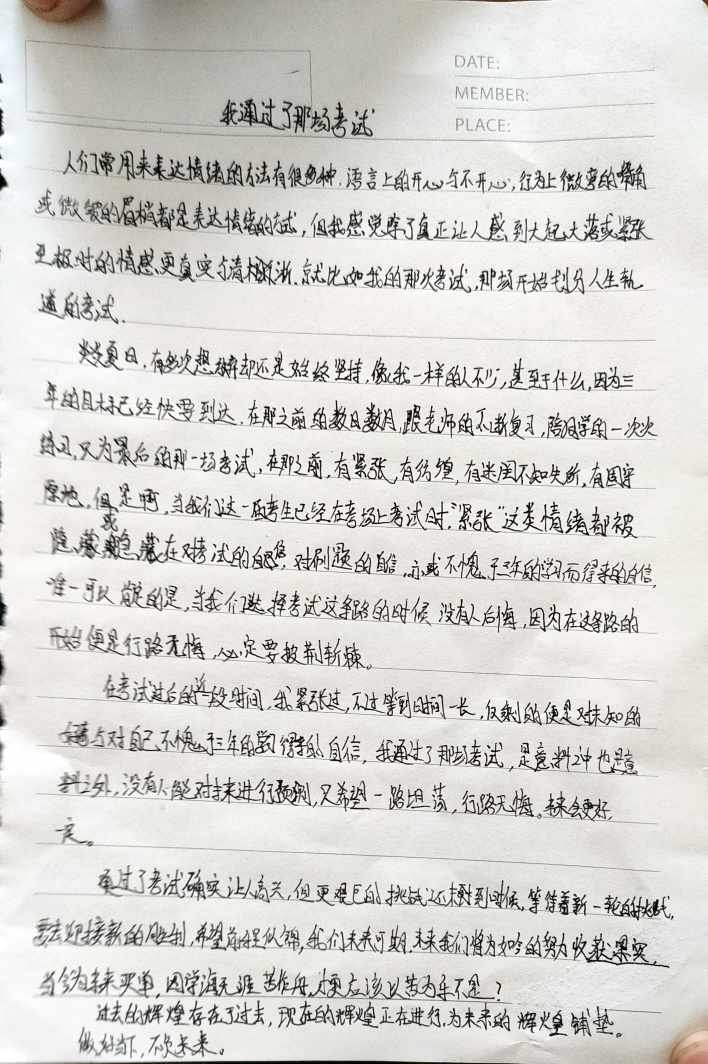 DATE:
MEMBER:
PLACE:
我通过了那场考试
人们常用来表达情绪的方法有很多种,语言上的开心与不开心,行为上微弯的嘴角
或微皱的眉梢都是表达情绪的方式,但我感觉除了真正让人感到大起大落或紧张
至极时的情感,更真实与清晰。就比如我的那次考试,那场开始划分人生轨
道的考试.
炎炎夏日,有多次想放弃却还是始终坚持,像我一样的人不少,甚至于什么,因为三
年的目标已经快要到达,在那之前的数日数月,跟老师的不断复习,陪同学的一次次
练习,只为最后的那一场考试,在那之前,有紧张,有彷徨,有迷困不知失所,有固守
原地,但是啊,当我们这一届考生已经在考场上考试时,“紧张”这类情绪都被
隐藏 或 隐藏在对考试的自信,对刷题的自信,亦或不愧于三年的学习而得来的自信,
唯一可以说的是,当我们选择考试这条路的时候 没有人后悔,因为在这条路的
开始便是行路无悔,必定要披荆斩棘。
在考试过后的这一段时间,我紧张过,不过等到时间一长,仅剩的便是对未知的
与对自己不愧于三年的学习得来的自信,我通过了那场考试,是意料之中也是意
料之外,没有人能对未来进行预测,只希望一路坦荡,行路无悔。未来会更好
定。
通过了考试确实让人高兴,但更艰巨的挑战还未到时候,等待着新一轮的
要去迎接新的胜利,希望前程似锦,我们未来可期,未来我们将为如今的努力收获果实,
当今为未来买单,因学海无涯苦作舟,才更应该以苦为乐不是?
过去的辉煌存在了过去,现在的辉煌正在进行,为未来的辉煌铺垫。
做好当下,不负未来。